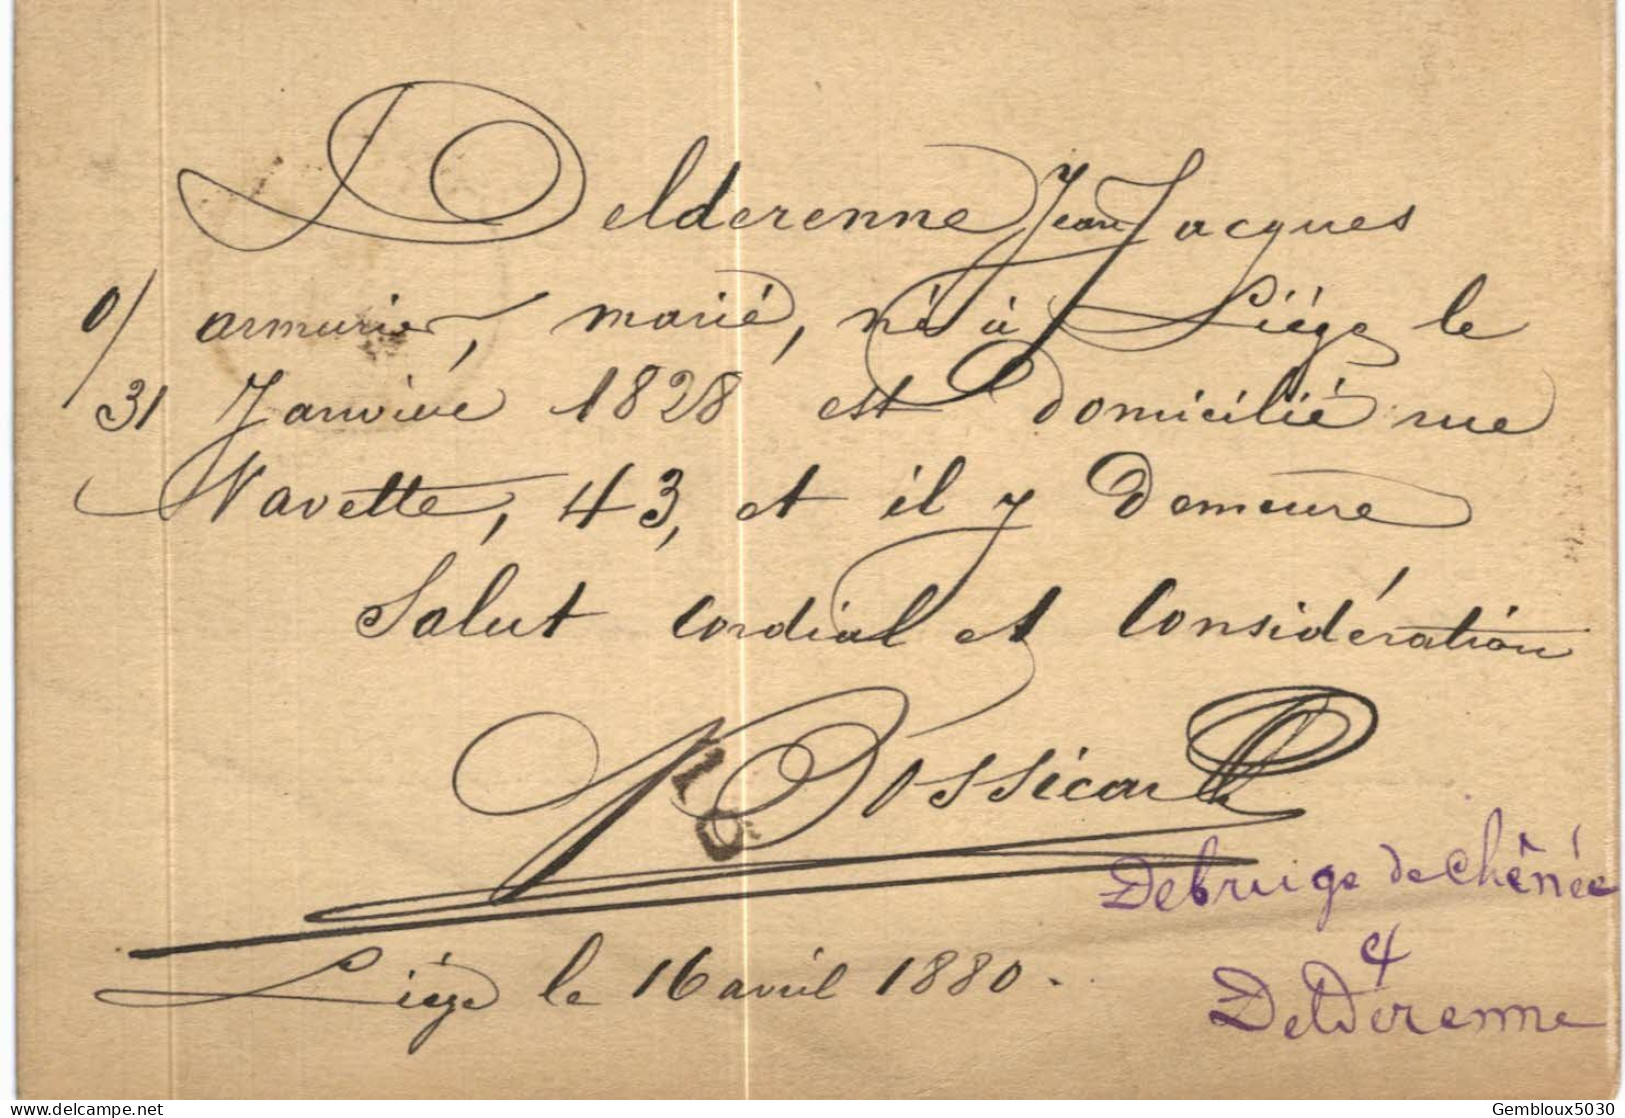 Delderenne Jean Jacques
0/ armurier, marié, né à Liége le
31 Janvier 1828 est domicilié rue
Navette, 43, et il y demeure
Salut cordial et Considération
Dossicard
Liége le 16 avril 1880.
Debruige de Chênée
et
Delderenne
delcampe.net
Gembloux5030